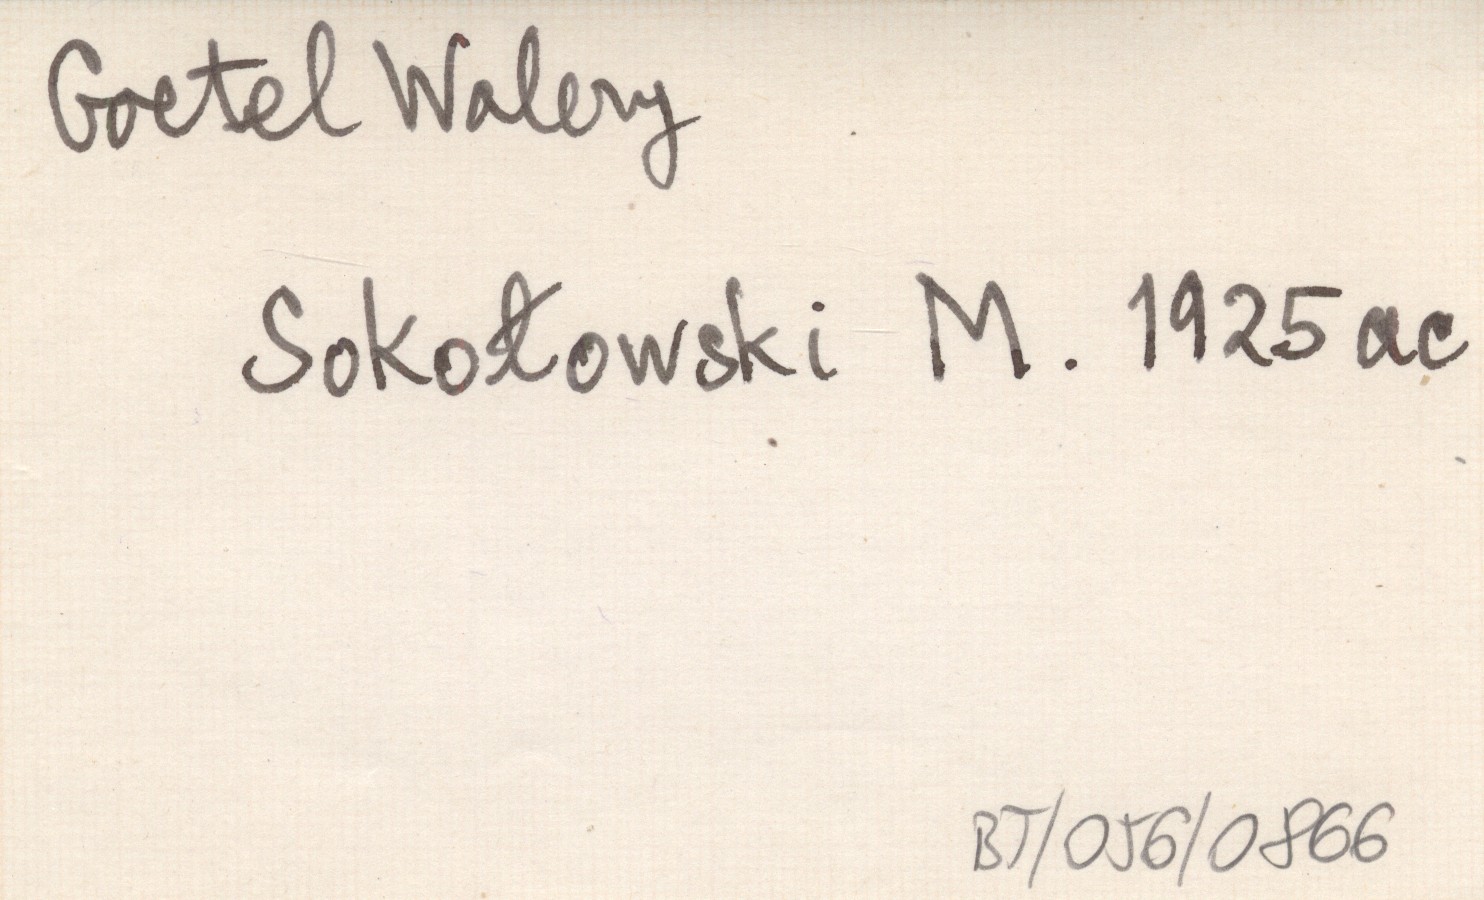 Goetel Walery
Sokołowski M. 1925 ac
BT/056/0866